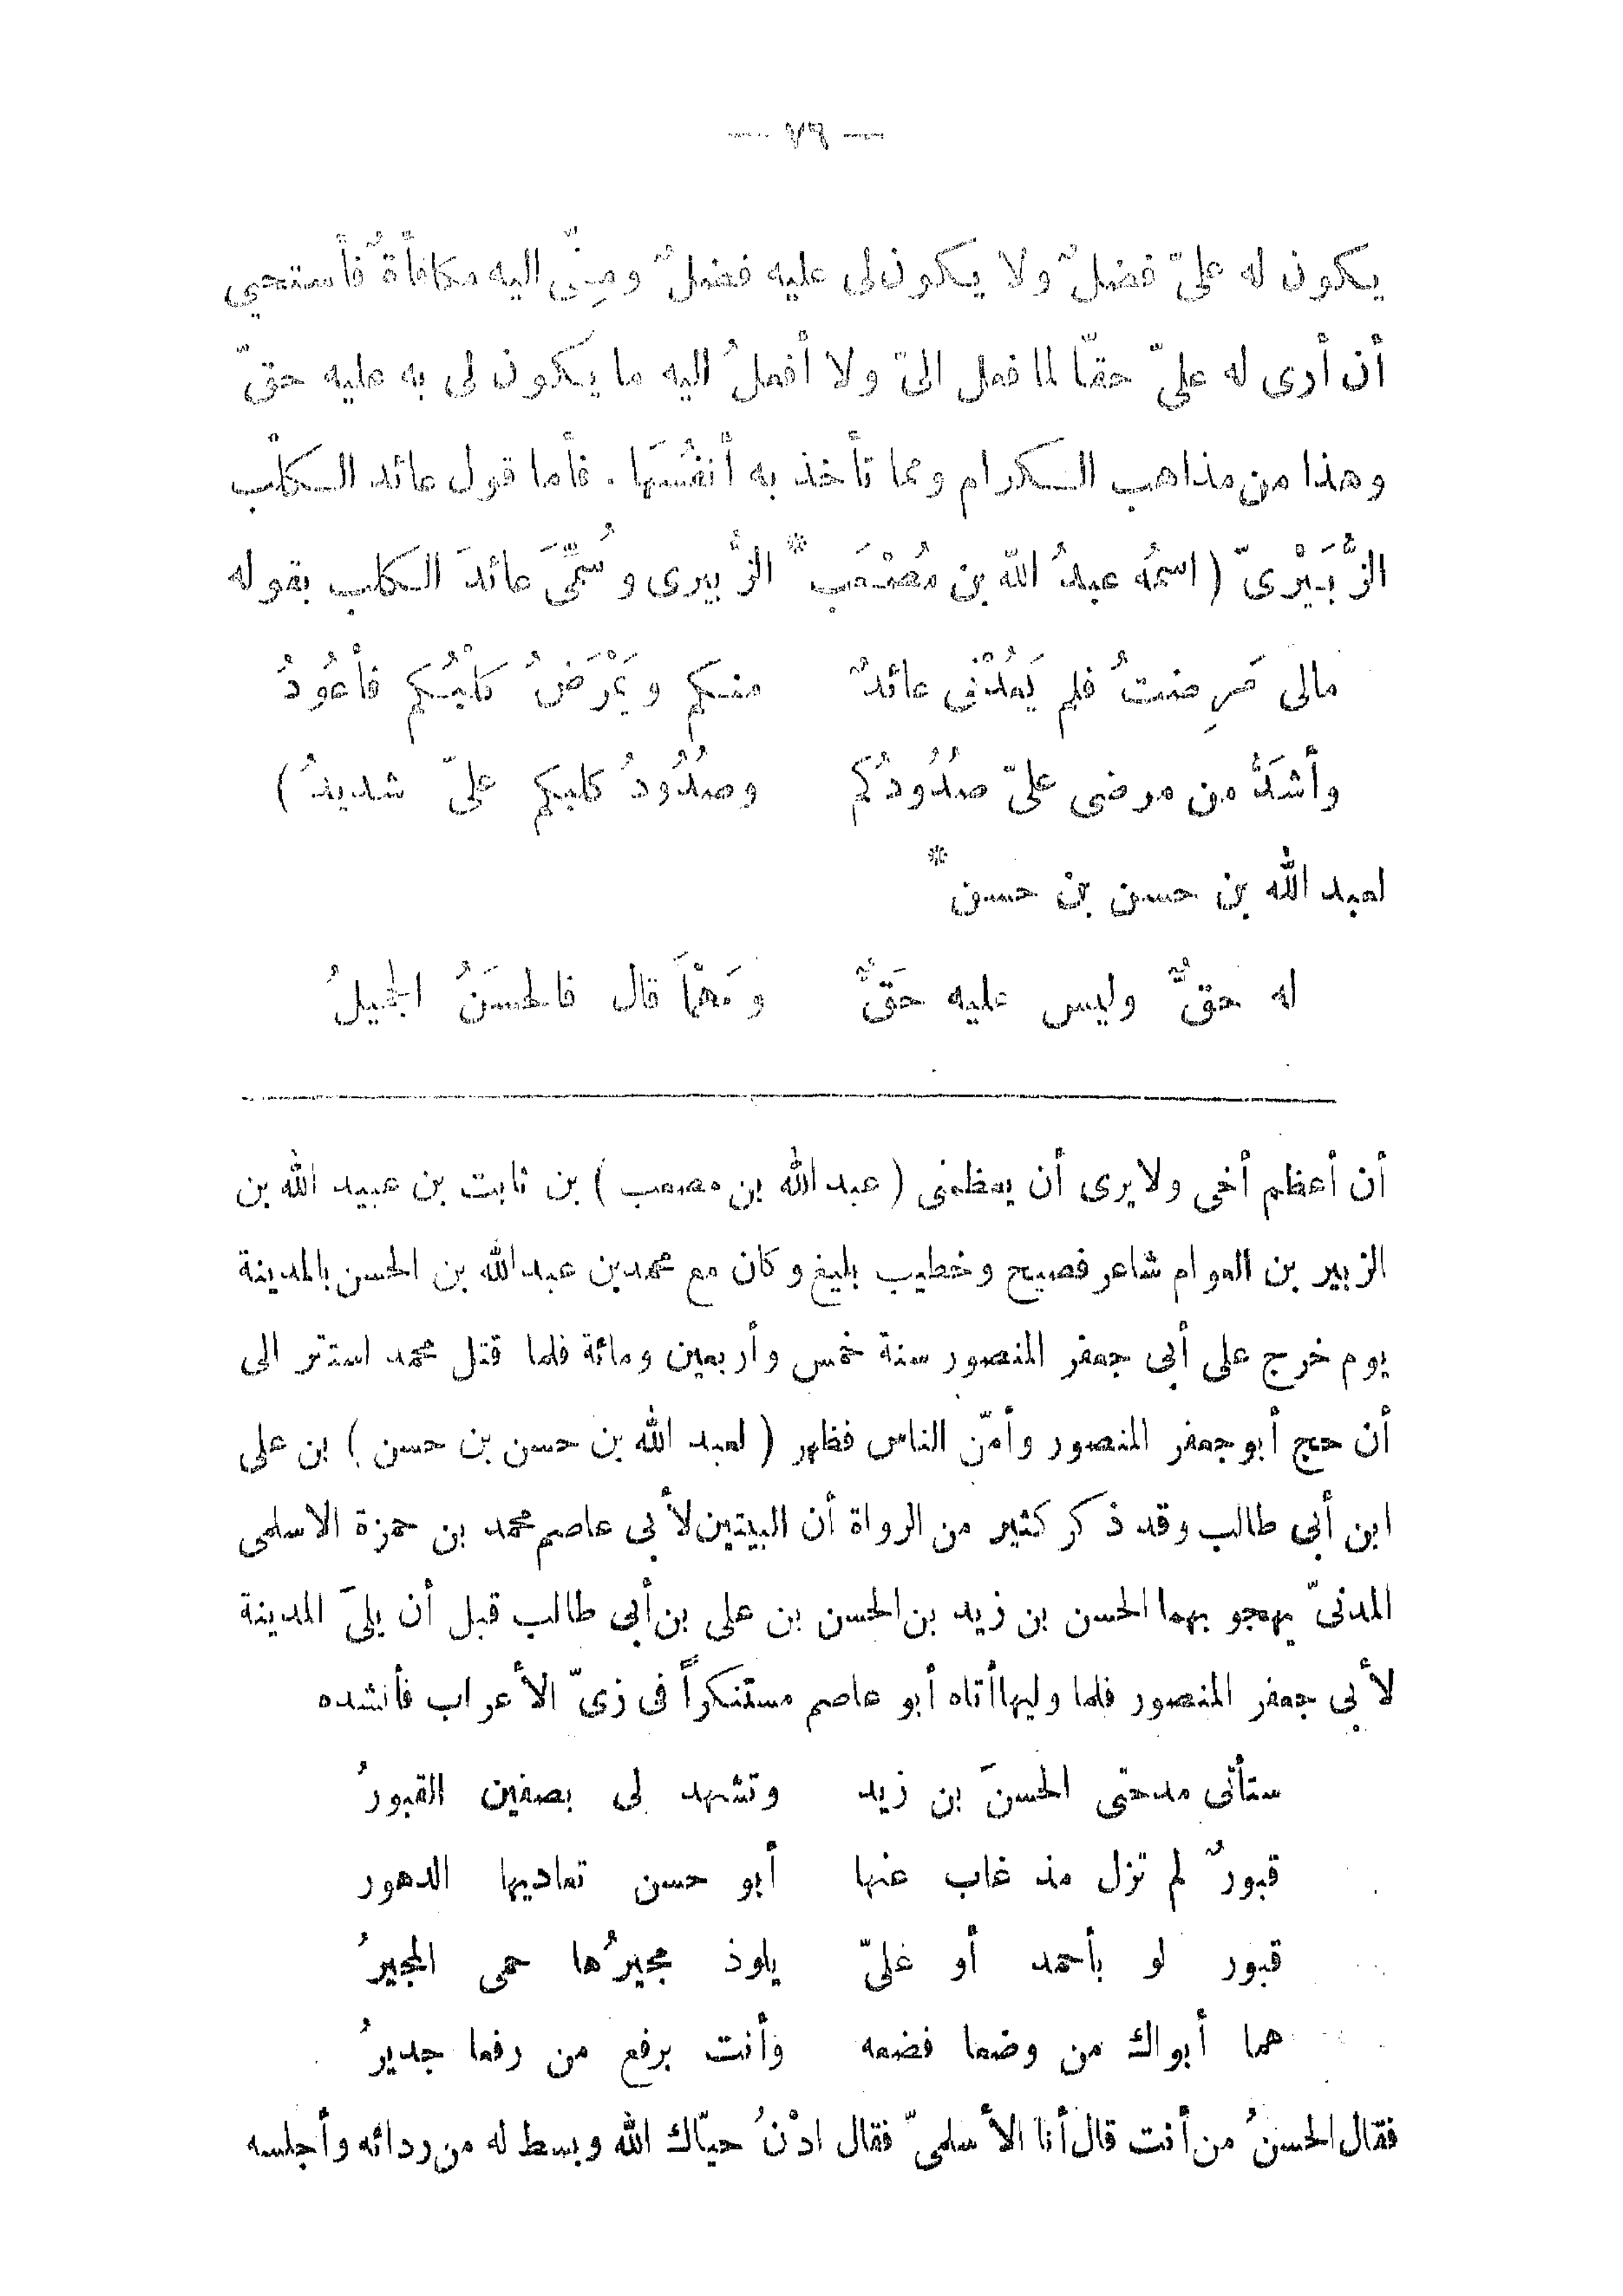 — ٧٩ —
يكون له علىّ فضلٌ ولا يكون لى عليه فضلٌ ومِنّى اليه مكافأةٌ فأستحيي
أن أرى له علىّ حقّا لما فعل الىّ ولا أفعلُ اليه ما يكون لى به عليه حقّ
وهذا من مذاهب الكرام ومما تأخذ به أنفُسَها . فأما قول عائد الكلْب
الزُّبَيْرىّ ( اسمُه عبدُ الله بن مُصْعَب * الزُّبيرى وسُمّىَ عائدَ الكلب بقوله
مالى مَرِضتُ فلم يَعُدْنى عائدٌ منكم ويَمْرَضُ كلْبُكم فأعُودُ
وأشَدُّ من مرضى علىّ صُدُودُكم وصُدُودُ كلبكم علىّ شديدُ )
لعبد الله بن حسن بن حسن *
له حقٌّ وليس عليه حَقٌّ ومَهْمَا قال فالحسَنُ الجميلُ
أن أعظم أخى ولا يرى أن يعظمنى ( عبد الله بن مصعب ) بن ثابت بن عبيد الله بن
الزبير بن العوام شاعر فصيح وخطيب بليغ وكان مع محمد بن عبد الله بن الحسن بالمدينة
يوم خرج على أبى جعفر المنصور سنة خمس وأربعين ومائة فلما قتل محمد استتر الى
أن حج أبو جعفر المنصور وأمّن الناس فظهر ( لعبد الله بن حسن بن حسن ) بن على
ابن أبى طالب وقد ذكر كثير من الرواة أن البيتين لأبى عاصم محمد بن حمزة الاسلمى
المدنىّ يهجو بهما الحسن بن زيد بن الحسن بن على بن أبى طالب قبل أن يلىَ المدينة
لأبى جعفر المنصور فلما وليها أتاه أبو عاصم مستنكراً فى زىّ الأعراب فأنشده
ستأتى مدحتى الحسنَ بن زيد وتشهد لى بصفين القبورُ
قبورٌ لم تزل مذ غاب عنها أبو حسن تعاديها الدهور
قبور لو بأحمد أو علىّ يلوذ مجيرُها حمى المجيرُ
هما أبواك من وضعا فضعه وأنت برفع من رفعا جديرُ
فقال الحسنُ من أنت قال أنا الأسلمىّ فقال ادْنُ حيّاك الله وبسط له من ردائه وأجلسه